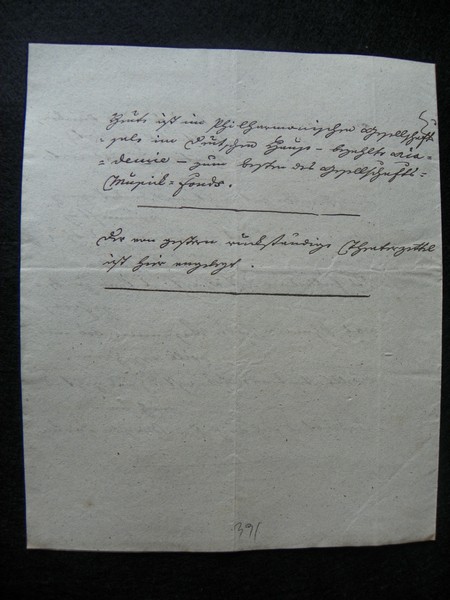 Heute ist im Philharmonischen Gesellschafts
-saale im Deutschen Hause – bezahlte Aca-
-demie – zum besten des Gesellschafts-
Musick-Fonds.
Der von gestern rückständige Theaterzettel
ist hier angelegt.
391